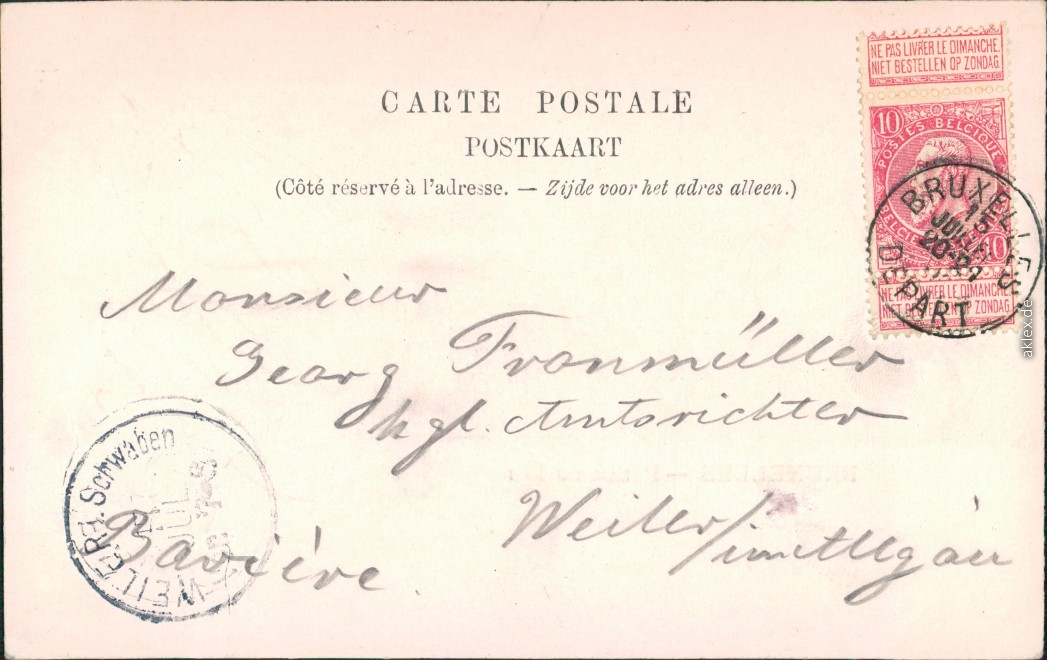 NE PAS LIVRER LE DIMANCHE.
NIET BESTELLEN OP ZONDAG.
CARTE POSTALE
POSTKAART
(Côté réservé à l'adresse. — Zijde voor het adres alleen.)
10
POSTES BELGIQUE
10
BRUXELLES
15
JUIL
DEPART
NE PAS LIVRER LE DIMANCHE.
NIET BESTELLEN OP ZONDAG.
Monsieur
Georg Fronmüller
kgl. Amtsrichter
Weiler/im Allgäu
Bavière
WEILER B. Schwaben
JUL
BRUXELLES —
aklex.de